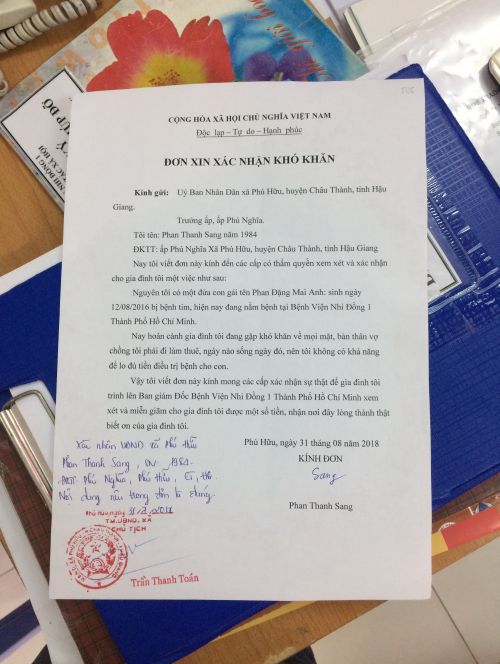 CỘNG HÒA XÃ HỘI CHỦ NGHĨA VIỆT NAM
Độc lạp – Tự do – Hạnh phúc
ĐƠN XIN XÁC NHẬN KHÓ KHĂN
Kính gửi: Uỷ Ban Nhân Dân xã Phú Hữu, huyện Châu Thành, tỉnh Hậu
Giang.
Trưởng ấp, ấp Phú Nghĩa.
Tôi tên: Phan Thanh Sang năm 1984
ĐKTT: ấp Phú Nghĩa Xã Phú Hữu, huyện Châu Thành, tỉnh Hậu Giang
Nay tôi viết đơn này kính đến các cấp có thẩm quyền xem xét và xác nhận
cho gia đình tôi một việc như sau:
Nguyên tôi có một đứa con gái tên Phan Đặng Mai Anh: sinh ngày
12/08/2016 bị bệnh tim, hiện nay đang nằm bệnh tại Bệnh Viện Nhi Đồng 1
Thành Phố Hồ Chí Minh.
Nay hoàn cảnh gia đình tôi đang gặp khó khăn về mọi mặt, bản thân vợ
chồng tôi phải đi làm thuê, ngày nào sống ngày đó, nên tôi không có khả năng
để lo đủ tiền điều trị bệnh cho con.
Vậy tôi viết đơn này kính mong các cấp xác nhận sự thật để gia đình tôi
trình lên Ban giám Đốc Bệnh Viện Nhi Đồng 1 Thành Phố Hồ Chí Minh xem
xét và miễn giảm cho gia đình tôi được một số tiền, nhận nơi đây lòng thành thật
biết ơn của gia đình tôi.
Phú Hữu, ngày 31 tháng 08 năm 2018
KÍNH ĐƠN
Sang
Phan Thanh Sang
Xác nhận UBND xã Phú Hữu
Phan Thanh Sang, SN 1984
ĐKTT Phú Nghĩa, Phú Hữu, CT, HG
Nội dung nêu trong đơn là đúng.
Phú Hữu, ngày 31/8/2018
TM. UBND. XÃ
CHỦ TỊCH
Trần Thanh Toàn
NHI ĐỒNG 1
TÁC XÃ HỘI